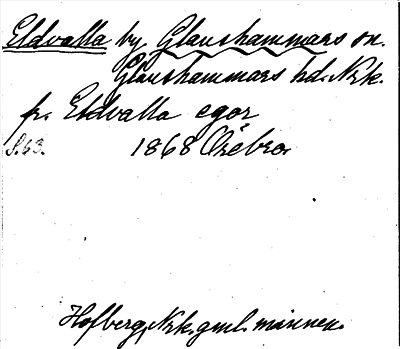 Eldvalla by Glanshammars sn.
Glanshammars hd. Nrk.
fr. Eldvalla egor
S. 63. 1868 Örebro.
Hofberg, Nrk. gml. minnen.